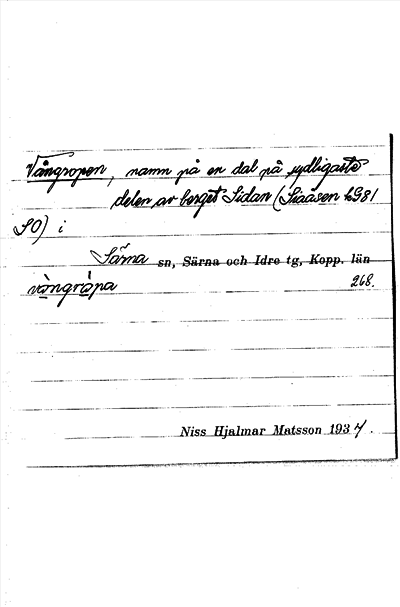 Vångropen, namn på en dal på sydligaste
delen av berget Sidan (Siåsen bG81
SO) i
Särna sn, Särna och Idre tg, Kopp. län
vångråpa 268.
Niss Hjalmar Matsson 1937.